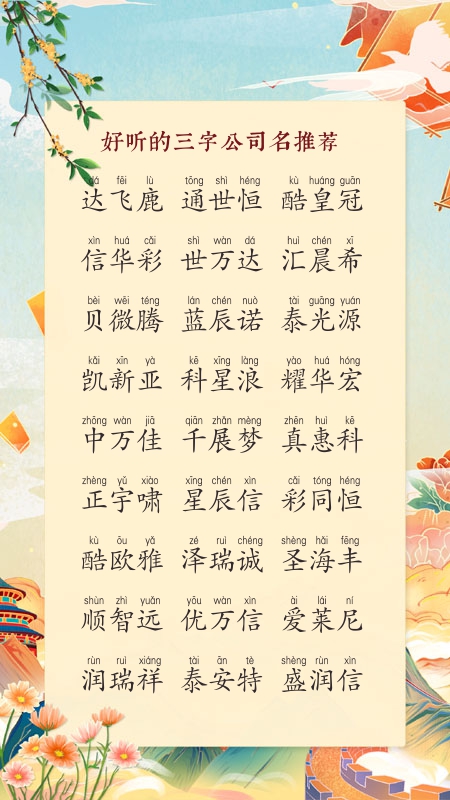 好听的三字公司名推荐
dá fēi lù tōng shì héng kù huáng guān
达飞鹿 通世恒 酷皇冠
xìn huá cǎi shì wàn dá huì chén xī
信华彩 世万达 汇晨希
bèi wēi téng lán chén nuò tài guāng yuán
贝微腾 蓝辰诺 泰光源
kǎi xīn yà kē xīng làng yào huá hóng
凯新亚 科星浪 耀华宏
zhōng wàn jiā qiān zhǎn mèng zhēn huì kē
中万佳 千展梦 真惠科
zhèng yǔ xiào xīng chén xìn cǎi tóng héng
正宇啸 星辰信 彩同恒
kù ōu yǎ zé ruì chéng shèng hǎi fēng
酷欧雅 泽瑞诚 圣海丰
shùn zhì yuǎn yōu wàn xìn ài lái ní
顺智远 优万信 爱莱尼
rùn ruì xiáng tài ān tè shèng rùn xìn
润瑞祥 泰安特 盛润信